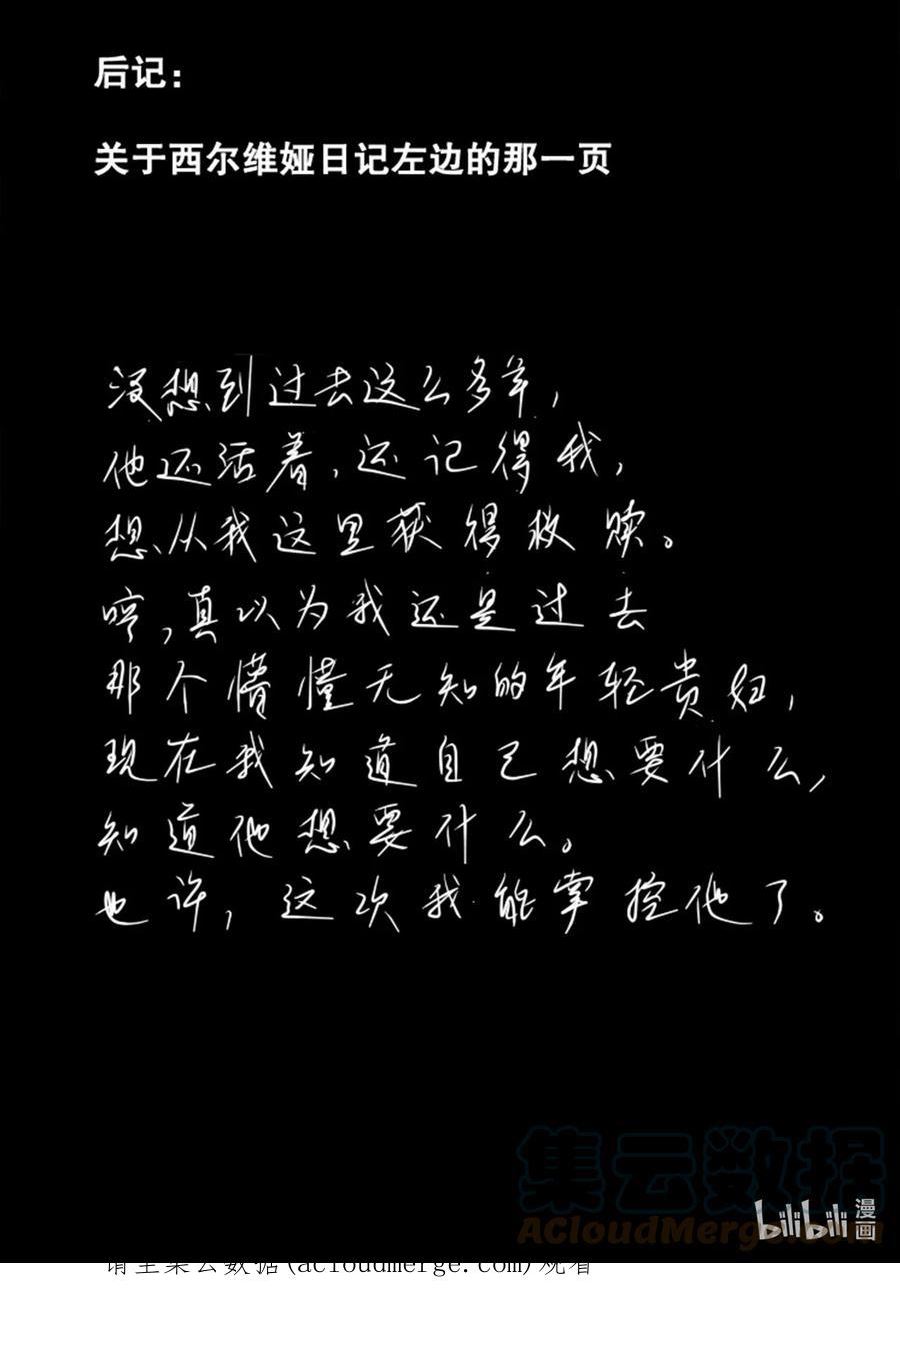 后记：
关于西尔维娅日记左边的那一页
没想到过去这么多年，
他还活着，还记得我，
想从我这里获得救赎。
哼，真以为我还是过去
那个懵懂无知的年轻贵妇，
现在我知道自己想要什么，
知道他想要什么。
也许，这次我能掌控他了。
集云数据
ACloudMerge.com
bilibili
漫画
请至集云数据(acloudmerge.com)观看